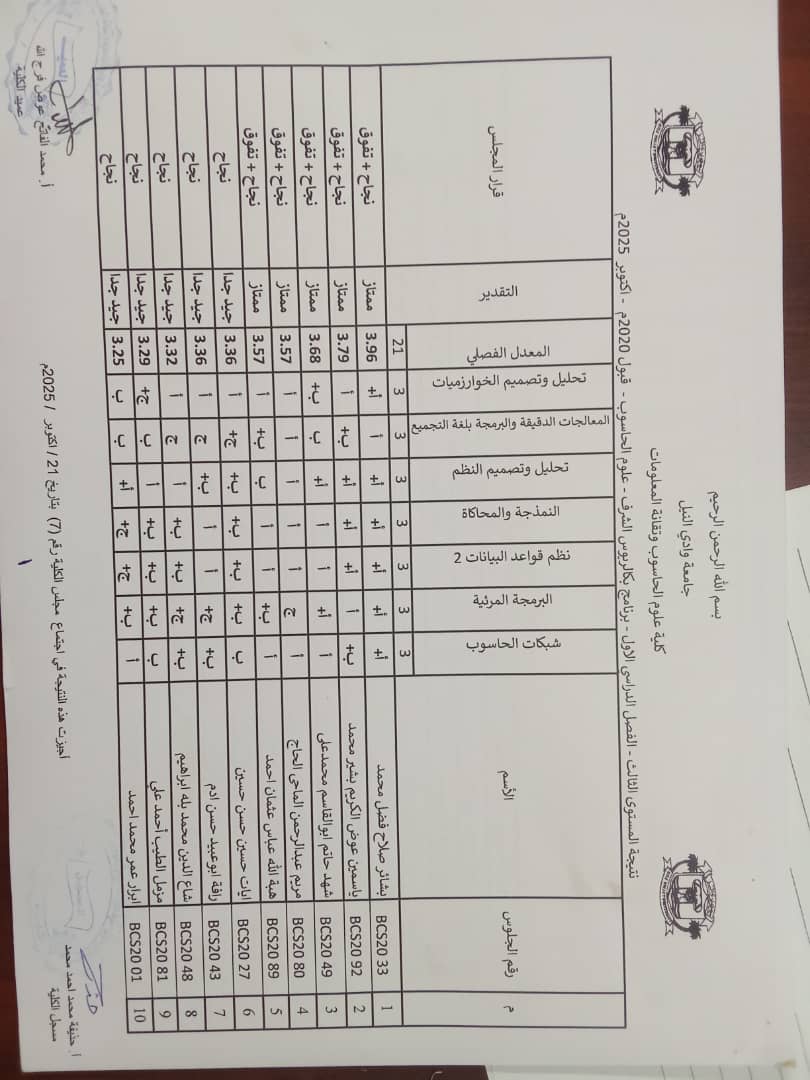 بسم الله الرحمن الرحيم
جامعة وادي النيل
كلية علوم الحاسوب وتقانة المعلومات
نتيجة المستوى الثالث - الفصل الدراسي الاول - برنامج بكالريوس الشرف - علوم الحاسوب - قبول 2020م - اكتوبر 2025م
م رقم الجلوس الأسم شبكات الحاسوب البرمجة المرئية نظم قواعد البيانات 2 النمذجة والمحاكاة تحليل وتصميم النظم المعالجات الدقيقة والبرمجة بلغة التجميع تحليل وتصميم الخوارزميات المعدل الفصلي التقدير قرار المجلس
3 3 3 3 3 3 3 21
1 BCS20 33 بشائر صلاح فضل محمد أ+ أ+ أ+ أ+ أ+ أ أ+ 3.96 ممتاز نجاح + تفوق
2 BCS20 92 ياسمين عوض الكريم بشير محمد ب+ أ أ+ أ+ أ+ ب+ أ 3.79 ممتاز نجاح + تفوق
3 BCS20 49 شهد حاتم ابوالقاسم محمدعلى أ أ+ أ أ أ+ ب ب+ 3.68 ممتاز نجاح + تفوق
4 BCS20 80 مريم عبدالرحمن الماحى الحاج أ ج أ أ أ أ أ 3.57 ممتاز نجاح + تفوق
5 BCS20 89 هبة الله عباس عثمان احمد أ ب+ أ أ ب ب+ أ 3.57 ممتاز نجاح + تفوق
6 BCS20 27 ايات حسين حسن حسين ب ب+ ب+ ب+ ب+ ج+ أ 3.36 جيد جدا نجاح
7 BCS20 43 رافة ابوعبيد حسن ادم ب+ ج+ أ أ ب+ ج أ 3.36 جيد جدا نجاح
8 BCS20 48 شاع الدين محمد بله ابراهيم ب+ ج+ ب+ ب+ أ ج أ 3.32 جيد جدا نجاح
9 BCS20 81 مزمل الطيب أحمد علي ب ب+ ب+ ب+ أ ب ج+ 3.29 جيد جدا نجاح
10 BCS20 01 ابرار عمر محمد احمد أ ب+ ج+ ج+ أ+ ب ب 3.25 جيد جدا نجاح
أجيزت هذه النتيجة في اجتماع مجلس الكلية رقم (7) بتاريخ 21/ اكتوبر / 2025م
أ. حنيفة محمد احمد محمد
مسجل الكلية
أ. محمد الفاتح عوض فرح الله
عميد الكلية